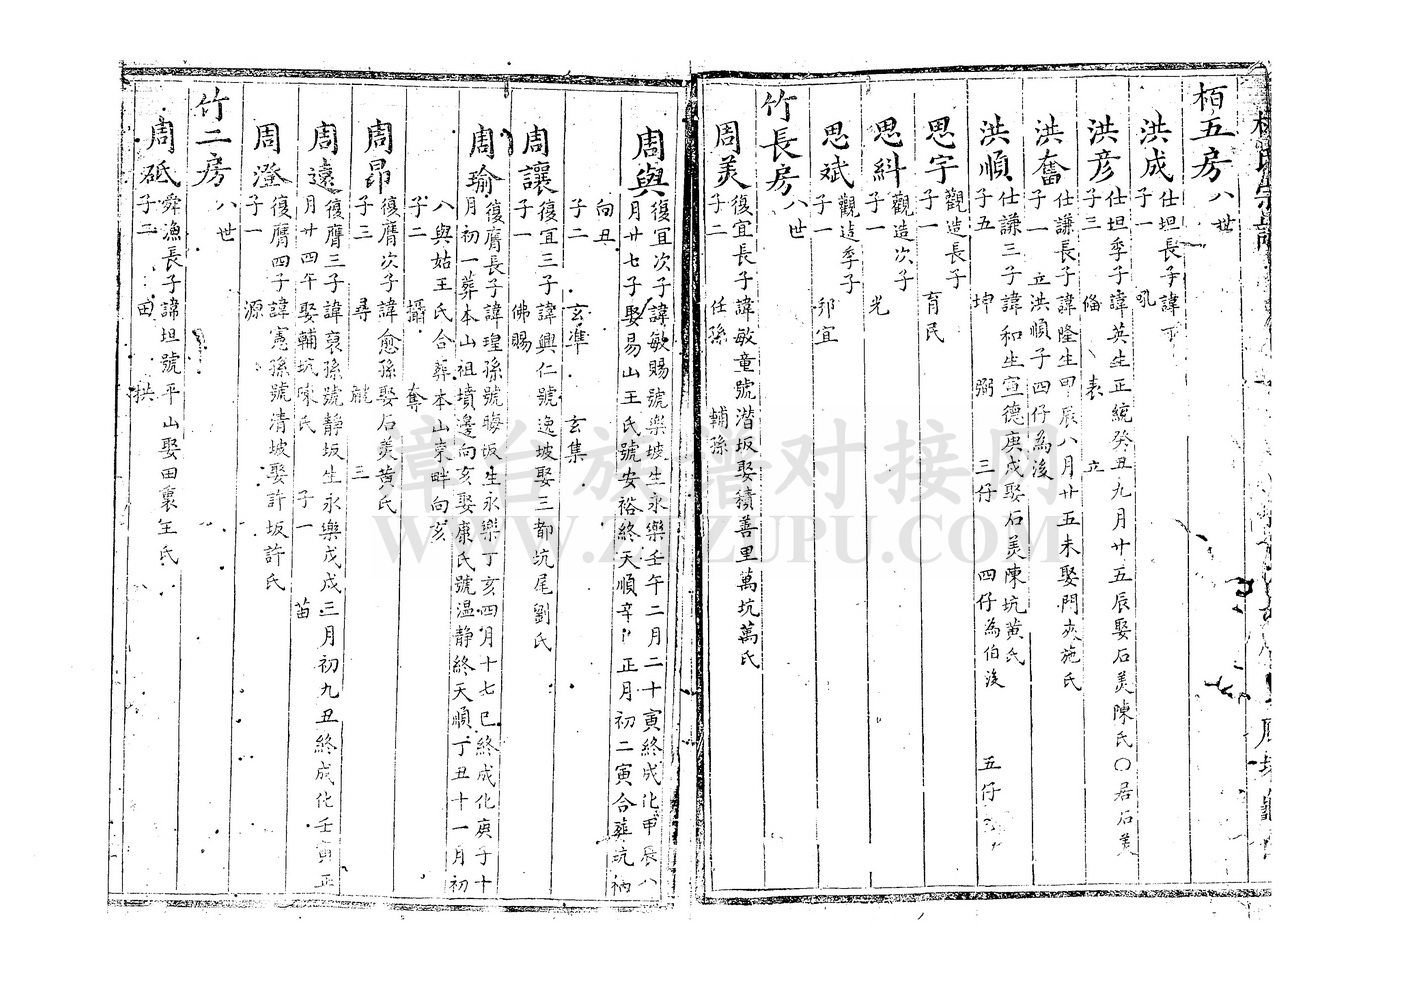 栢五房 八世
洪成 仕坦長子諱
子一 吼
洪彦 仕坦季子諱英生正統癸丑九月廿五辰娶石美陳氏〇居石美
子三 倫 表 立
洪奮 仕謙長子諱隆生甲辰八月廿五未娶門夾施氏
子一 立洪順子四仔為後
洪順 仕謙三子諱和生宣德庚戌娶石美陳坑黄氏
子五 坤 弼 三仔 四仔為伯後 五仔
思宇 觀造長子
子一 育民
思糾 觀造次子
子一 光
思斌 觀造季子
子一 邦宜
竹長房 八世
周美 復宜長子諱敏童號潛坂娶積善里萬坑萬氏
子二 任孫 輔孫
周與 復宜次子諱敏賜號樂坡生永樂壬午二月二十寅終成化甲辰八
月廿七子娶易山王氏號安裕終天順辛 正月初二寅合葬坑柄
向丑
子二 玄準 玄集
周讓 復宜三子諱興仁號逸坡娶三都坑尾劉氏
子一 佛賜
周瑜 復膺長子諱瑝孫號晦坂生永樂丁亥四月十七巳終成化庚子十
月初一葬本山祖墳邊向亥娶康氏號温静終天順丁丑十一月初
八與姑王氏合葬本山東畔向亥
子二 攝 奪
周昂 復膺次子諱愈孫娶后美黄氏
子三 尋 龍 三
周遠 復膺三子諱裒孫號静坂生永樂戊戌三月初九丑終成化壬寅正
月廿四午娶輔坑陳氏 子一 苗
周澄 復膺四子諱憲孫號清坡娶許坂許氏
子一 源
竹二房 八世
周砥 舜漁長子諱坦號平山娶田裏王氏
子二 田 拱
漳台族谱对接网
WWW.ZTZUPU.COM